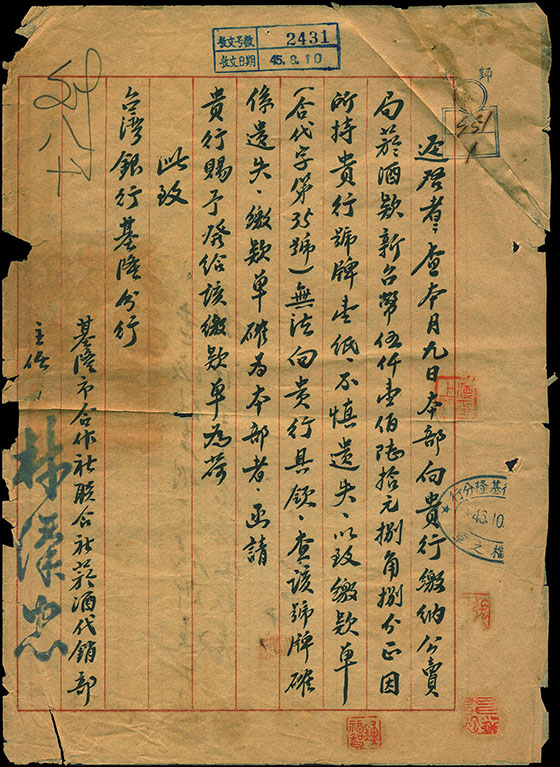 收文号數 2431
收文日期 45.8.10
歸
551
1
逕啓者:查本月九日本部向貴行繳納公賣
局菸酒款新台幣伍仟壹佰陸拾元捌角捌分正因
所持貴行號牌壹紙、不慎遺失、以致繳款單
(合代字第35號)無法向貴行具領、查該號牌確
係遺失、繳款單確為本部者、函請
貴行賜予發給該繳款單為荷
此致
台灣銀行基隆分行
基隆市合作社聯合社菸酒代銷部
主任
林漢忠
行基隆分行